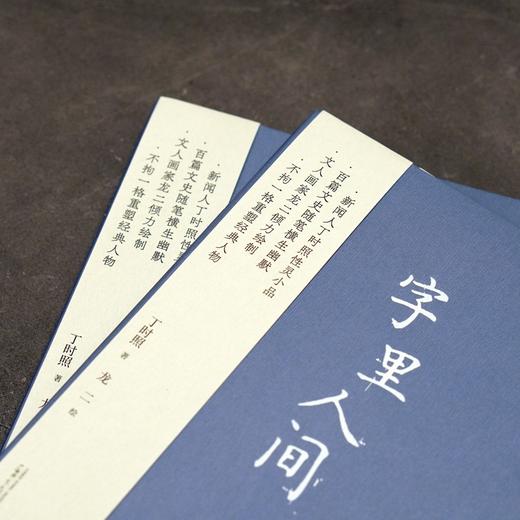 字里人间
·新闻人丁时照性灵小品
·百篇文史随笔横生幽默
·文人画家龙二倾力绘制
·不拘一格重塑经典人物
丁时照 著
龙二 绘
·新闻人丁时照性灵
·百篇文史随笔横生幽默
·文人画家龙二倾力绘制
·不拘一格重塑经典人物
丁时照 著
龙